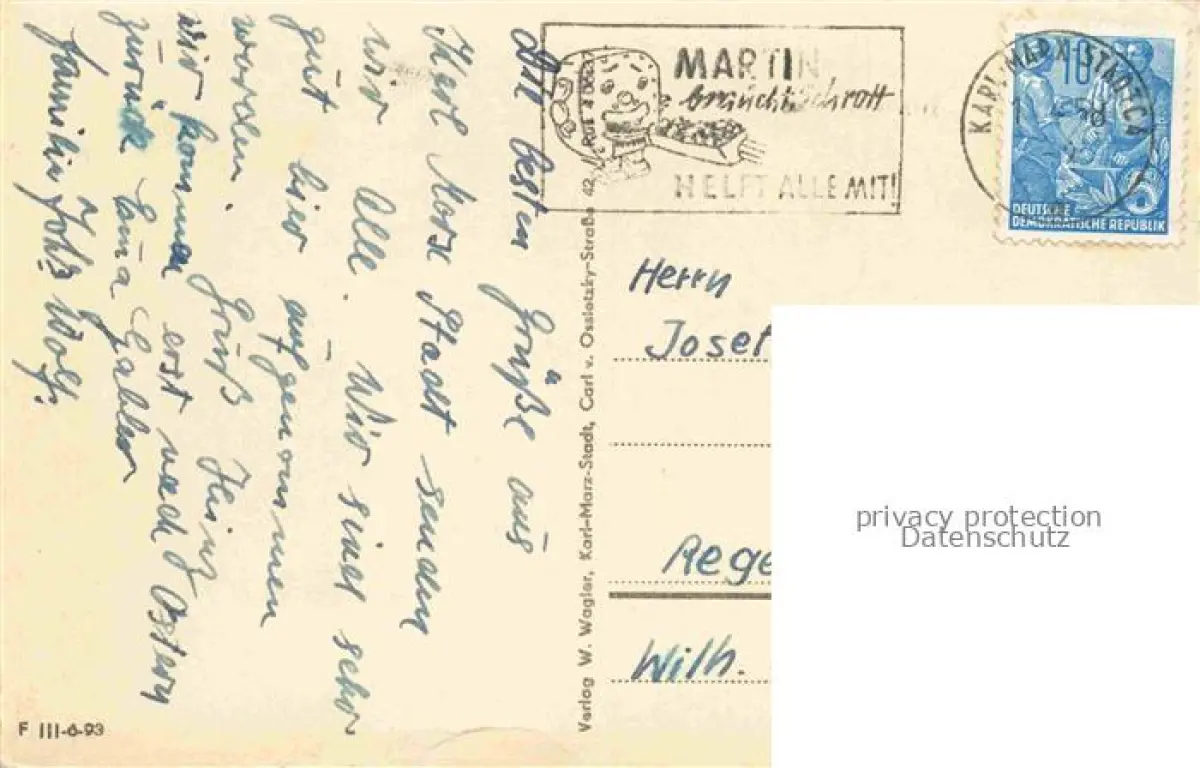 Die besten Grüße aus
Karl Marx Stadt senden
wir Alle. Wir sind sehr
gut hier aufgenommen
worden. Gruß Heinz
wir kommen erst nach Ostern
zurück
Familie Wolf.
Verlag W. Wagler, Karl-Marx-Stadt, Carl v. Ossietzky-Straße 42 / Ruf 4
F III-6-93
MARTIN
braucht Schrott
HELFT ALLE MIT!
KARL-MARX-STADT C 4
10
DEUTSCHE
DEMOKRATISCHE REPUBLIK
Herrn
Josef
Rege
Wilh.
privacy protection
Datenschutz